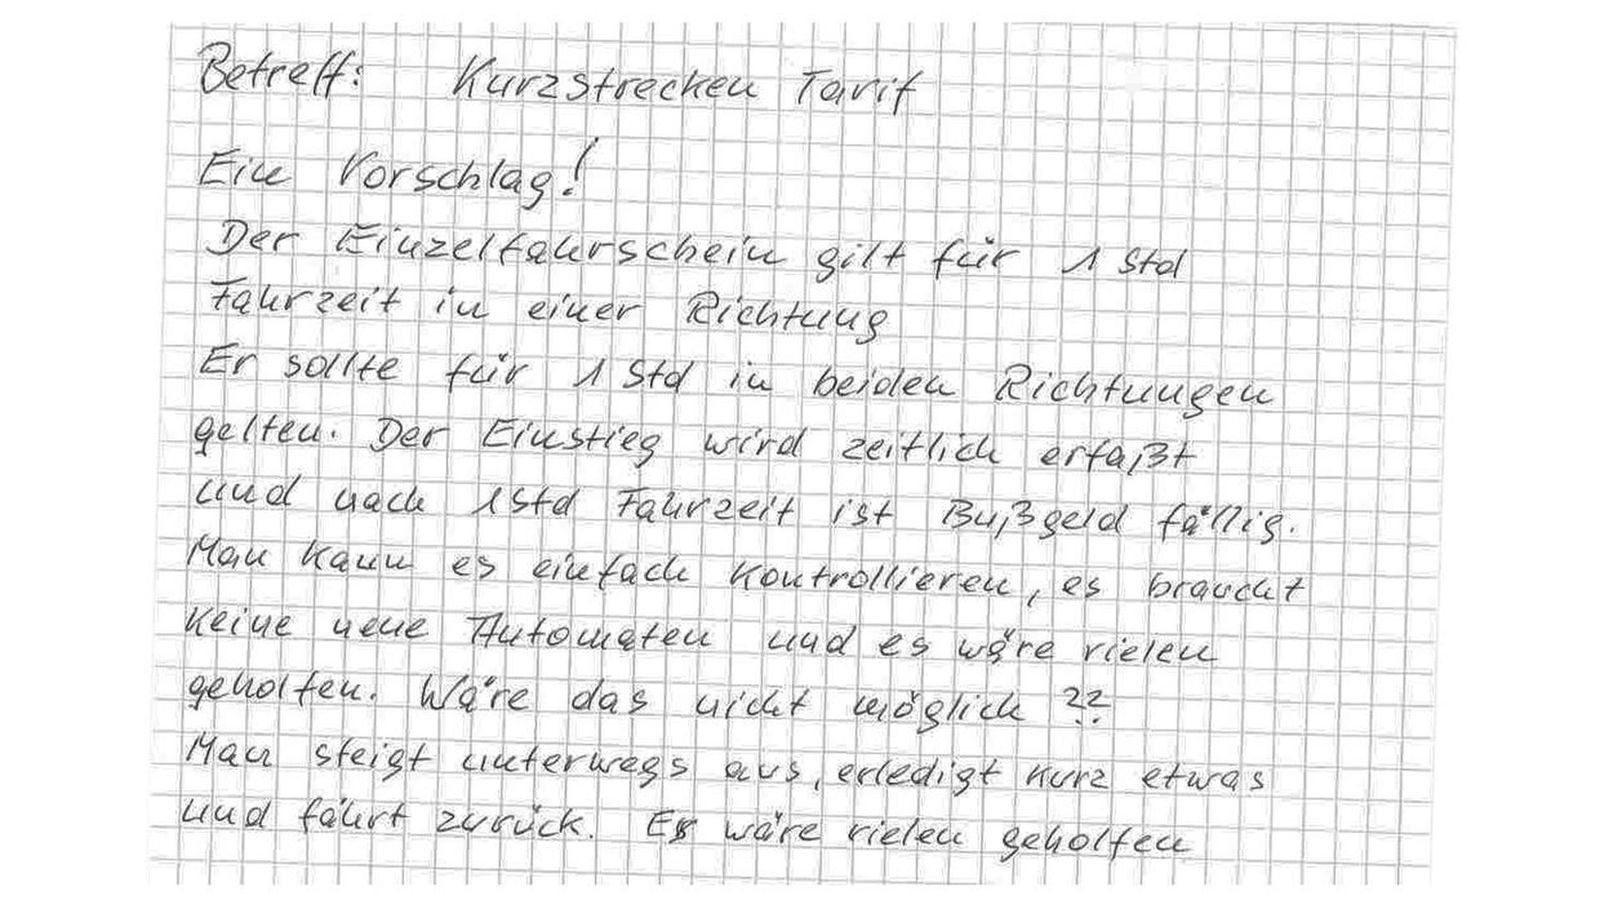 Betreff: Kurzstrecken Tarif
Ein Vorschlag!
Der Einzelfahrschein gilt für 1 Std
Fahrzeit in einer Richtung
Er sollte für 1 Std in beiden Richtungen
gelten. Der Einstieg wird zeitlich erfaßt
und nach 1 Std Fahrzeit ist Bußgeld fällig.
Man kann es einfach kontrollieren, es braucht
keine neue Automaten und es wäre vielen
geholfen. Wäre das nicht möglich ??
Man steigt unterwegs aus, erledigt kurz etwas
und fährt zurück. Es wäre vielen geholfen